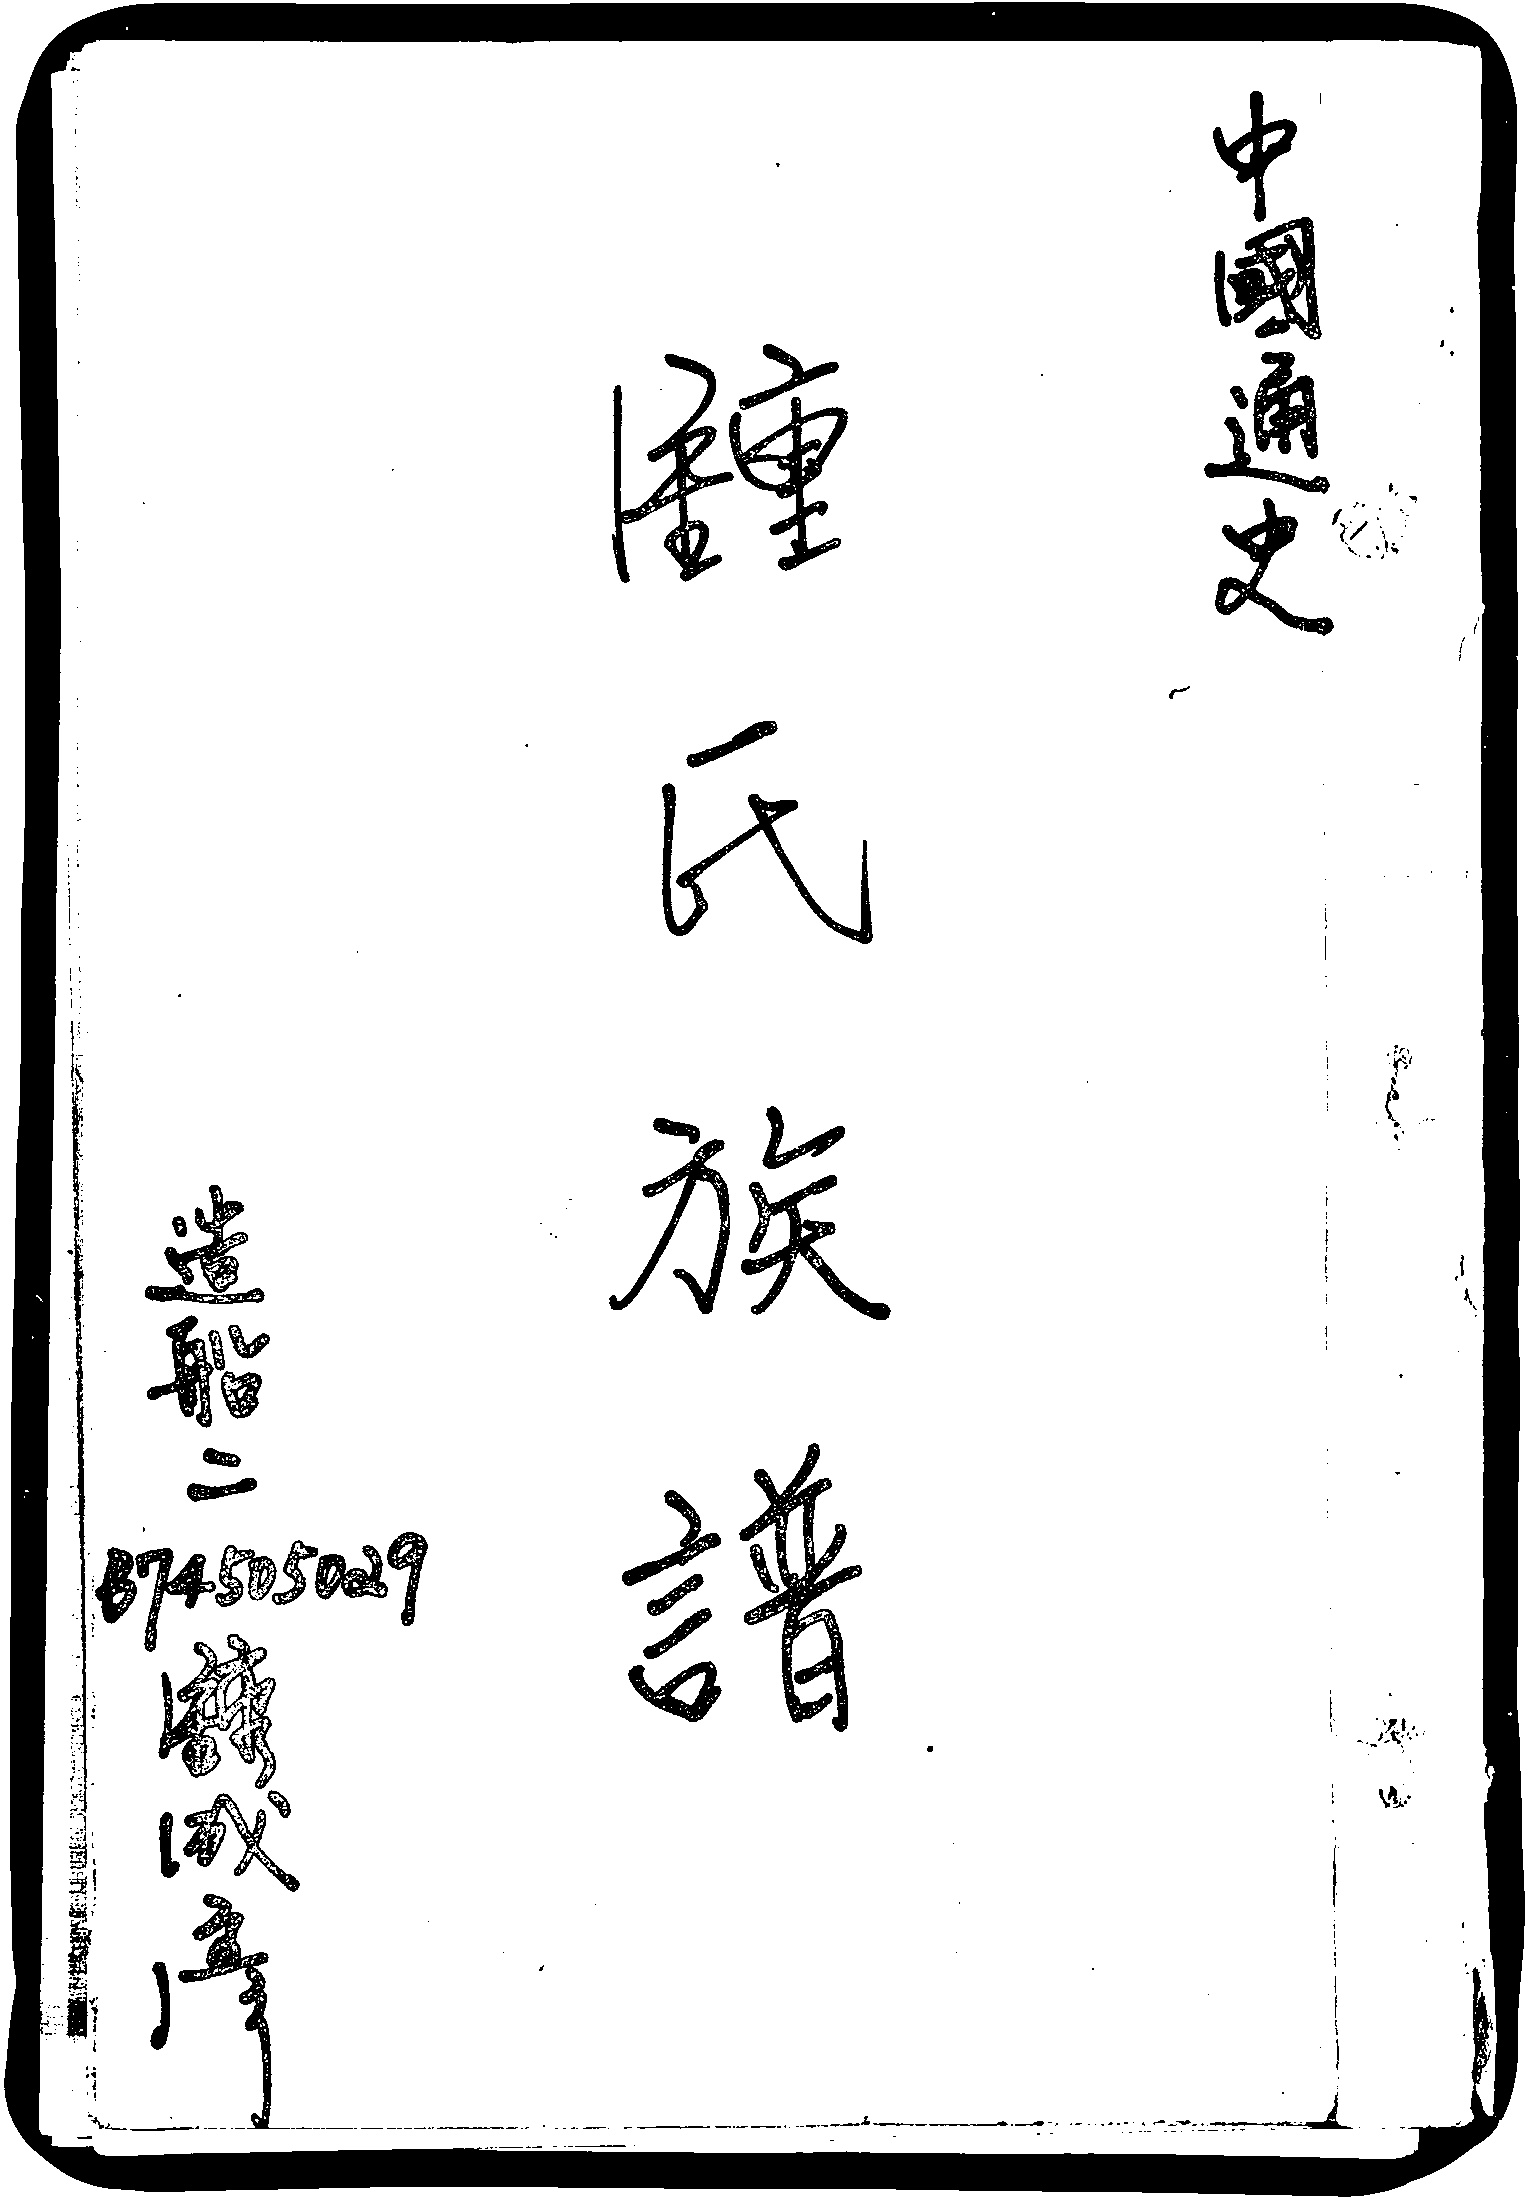 中國通史
鍾氏族譜
造船二
B74505029